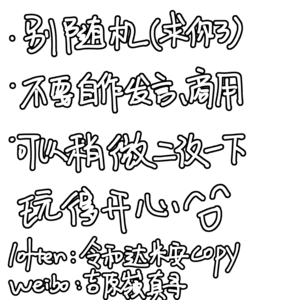 ·别随机(求你了)
·不要自作发言、商用
·可以稍微二改一下
玩得开心
lofter:令和达米安copy
weibo:吉原真寻